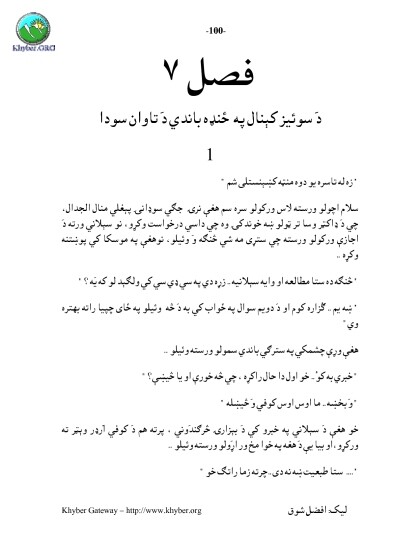 Khyber.ORG
-100-
فصل ۷
دَ سوئیز کېنال په څنډه باندي دَ تاوان سودا
1
" زه له تاسره یو دوه منټه کښېنستلی شم "
سلام اچولو ورسته لاس ورکولو سره سم هغې نرۍ. جګي سوډانۍ پېغلې منال الجدال،
چي دَ ډاکټر وسا تر ټولو ښه خوندکۍ وه چي داسي درخواست وکړو، نو سېلاني ورته دَ
اجازې ورکولو ورسته چي ستړی مه شي څنګه وَ وئیلو، نوهغې په موسکا کې پوښتنه
وکړه ..
"څنګه ده ستا مطالعه او وایه سېلانیه .. زړه دي په سي ډي سي کي ولګېد لو که یَه؟ "
" ښه یم .. ګزاره کوم او دَ دویم سوال په ځواب کي به دَ څه وئیلو په ځای چپیا راته بهتره
وي"
هغې ورې چشمکي په سترګي باندي سمولو ورسته وئیلو ..
"خبري به کوُ.. خو اول دا حال راکړه ، چي څه خورې او یا څیښې؟ "
"وَ بخښه .. ما اوس اوس کوفي وَ څیښله "
خو هغې دَ سېلاني په خبرو کې دَ بېزارۍ څرګندوني ، پرته هم دَ کوفي آرډر وېټر ته
ورکړو، او بیا یې دَ هغه په خوا مخ ور اړولو ورسته وئیلو ..
".... ستا طبعیت ښه نه دی..چرته زما راتګ خو "
Khyber Gateway – http://www.khyber.org
لیک: افضل شوق